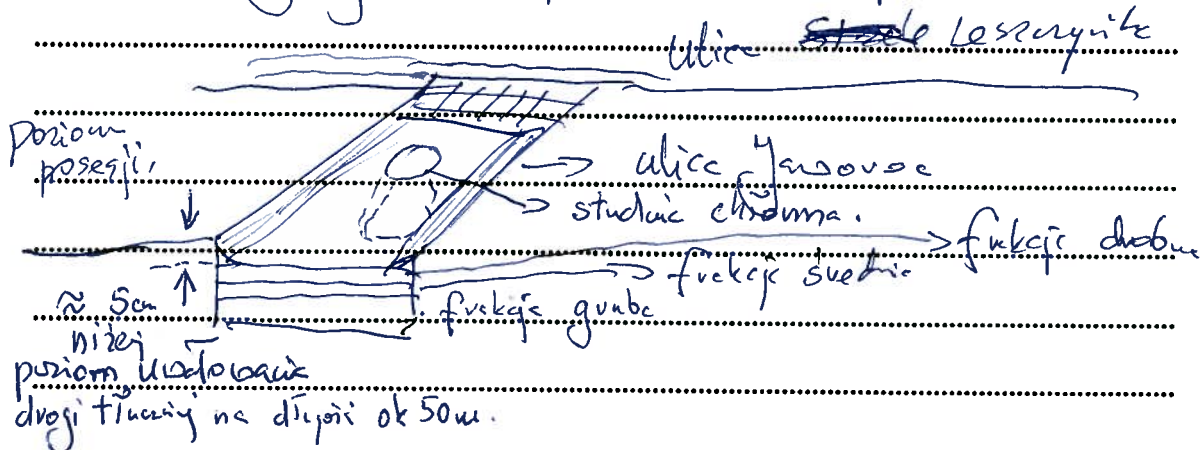 ulica Leszczyńska
poziom
posesji,
→ ulica Jaworowa
→ studnia chłonna.
→ frakcja drobna
→ frakcja średnia
frakcja gruba
≈ 5cm
niżej
poziom uwałowania
drogi tłuczniej na długości ok 50m.